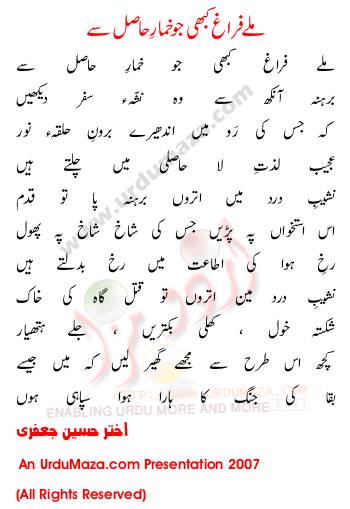 ملے فراغ کبھی جو خمارِ حاصل سے
ملے فراغ کبھی جو خمارِ حاصل سے
برہنہ آنکھ سے وہ نشۂ سفر دیکھیں
کہ جس کی رَو میں اندھیرے برونِ حلقۂ نور
عجیب لذتِ لا حاصلی میں چلتے ہیں
نشیبِ درد میں اتروں برہنہ پا تو قدم
اس استخواں پہ پڑیں جس کی شاخ شاخ پہ پھول
رخِ ہوا کی اطاعت میں رخ بدلتے ہیں
نشیبِ درد مین اتروں تو قتل گاہ کی خاک
شکستہ خول ، کھلی بکتریں ، جلے ہتھیار
کچھ اس طرح سے مجھے گھیر لیں کہ میں جیسے
بقا کی جنگ کا ہارا ہوا سپاہی ہوں
اختر حسین جعفری
An UrduMaza.com Presentation 2007
(All Rights Reserved)
www.urdumaza.com
اردو مزا
HTTP://WWW.URDUMAZA.COM
ENABLING URDU MORE AND MORE